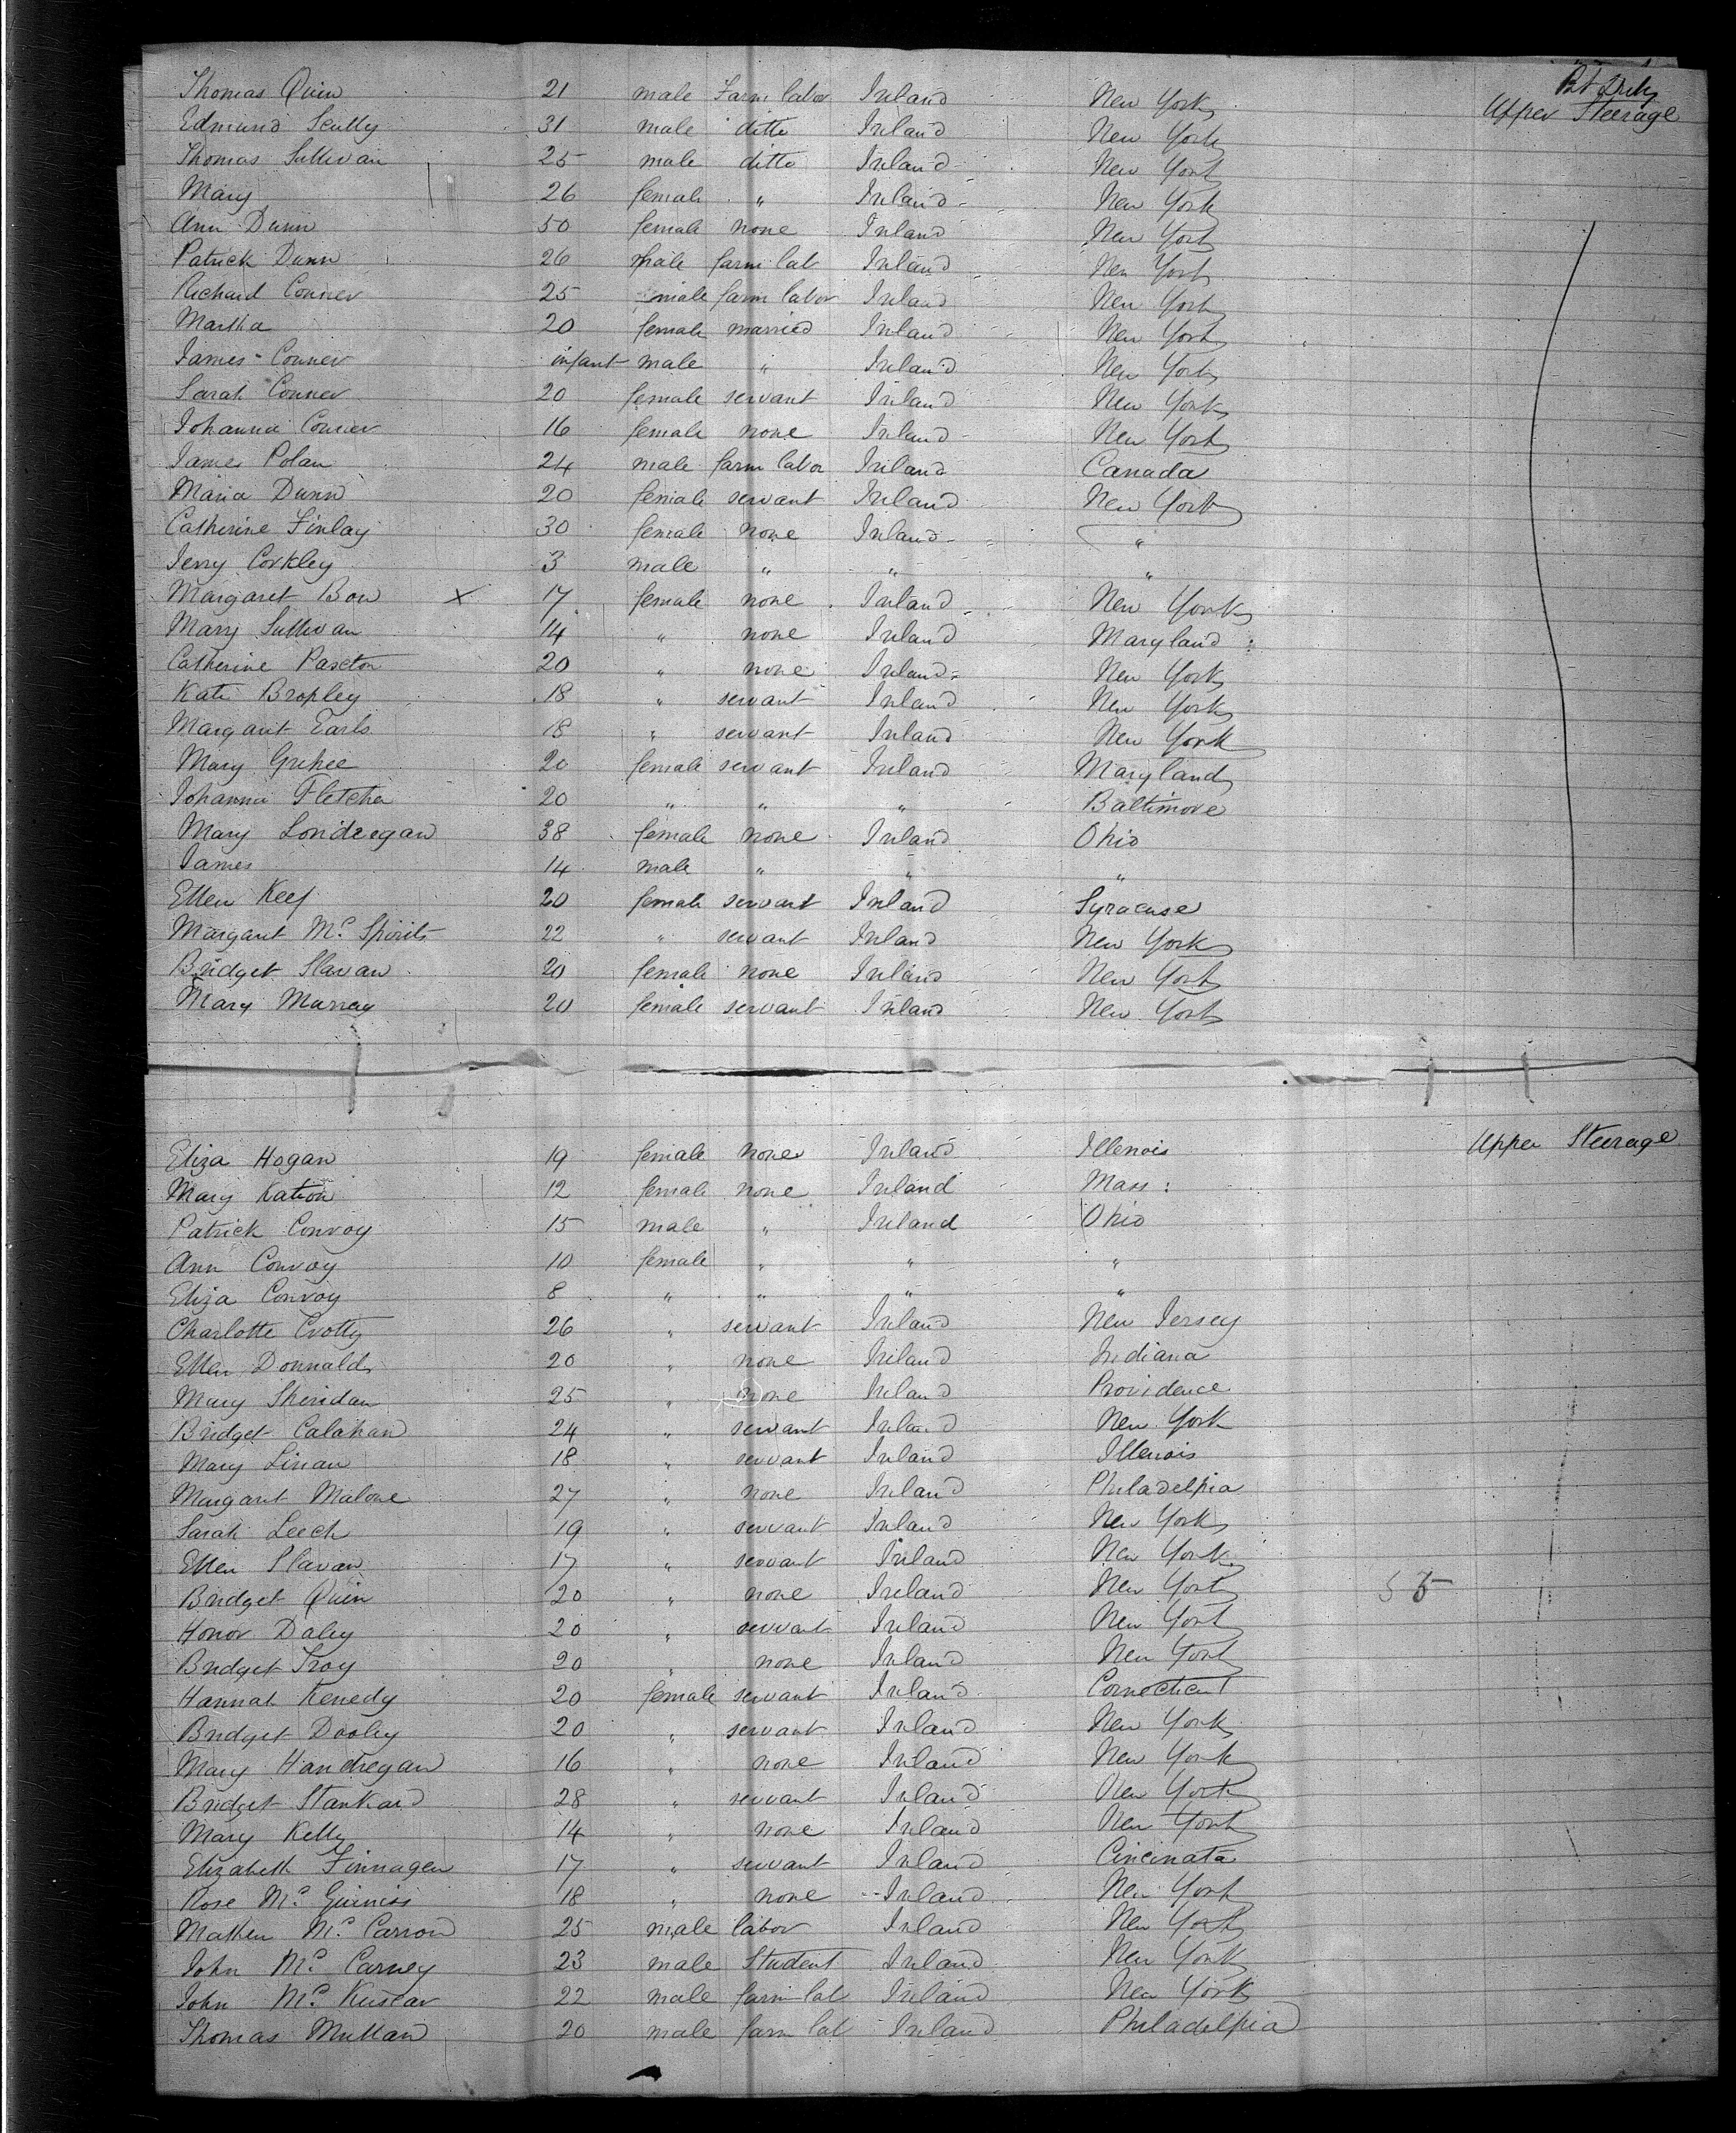 Upper Steerage
Thomas Quin 21 male Farm labor Ireland New York
Edmund Scully 31 male ditto Ireland New York
Thomas Sullivan 25 male ditto Ireland New York
Mary 26 female " Ireland New York
Ann Dunn 50 female none Ireland New York
Patrick Dunn 26 male farm lab Ireland New York
Richard Conner 25 male farm labor Ireland New York
Martha 20 female married Ireland New York
James Conner infant male " Ireland New York
Sarah Conner 20 female servant Ireland New York
Johanna Conner 16 female none Ireland New York
James Polan 24 male farm labor Ireland Canada
Maria Dunn 20 female servant Ireland New York
Catherine Finlay 30 female none Ireland "
Jerry Corkley 3 male " " "
Margaret Bow X 17 female none Ireland New York
Mary Sullivan 14 " none Ireland Maryland
Catherine Paxton 20 " none Ireland New York
Kate Brophey 18 " servant Ireland New York
Margaret Earls 18 " servant Ireland New York
Mary Grehee 20 female servant Ireland Maryland
Johanna Fletcher 20 " " " Baltimore
Mary Londregan 38 female none Ireland Ohio
James 14 male " " "
Ellen Keef 20 female servant Ireland Syracuse
Margaret Mc Spirits 22 " servant Ireland New York
Bridget Slavan 20 female none Ireland New York
Mary Murray 20 female servant Ireland New York
Eliza Hogan 19 female none Ireland Illenois Upper Steerage
Mary Kation 12 female none Ireland Mass:
Patrick Convoy 15 male " Ireland Ohio
Ann Convoy 10 female " " "
Eliza Convoy 8 " " " "
Charlotte Crotty 26 " servant Ireland New Jersey
Ellen Donnald 20 " none Ireland Indiana
Mary Sheridan 25 " none Ireland Providence
Bridget Calahan 24 " servant Ireland New York
Mary Linan 18 " servant Ireland Illenois
Margaret Malone 27 " none Ireland Philadelpia
Sarah Leech 19 " servant Ireland New York
Ellen Slavan 17 " servant Ireland New York
Bridget Quin 20 " none Ireland New York 55
Honor Daley 20 " servant Ireland New York
Bridget Troy 20 " none Ireland New York
Hannah Kenedy 20 female servant Ireland Connecticut
Bridget Dooley 20 " servant Ireland New York
Mary Handregan 16 " none Ireland New York
Bridget Stankard 28 " servant Ireland New York
Mary Kelly 14 " none Ireland New York
Elizabeth Finnagen 17 " servant Ireland Cincinata
Rose Mc Guiniss 18 " none Ireland New York
Mathew Mc Carron 25 male labor Ireland New York
John Mc Carney 23 male Student Ireland New York
John Mc 22 male farm lab Ireland New York
Thomas Mullan 20 male farm lab Ireland Philadelpia